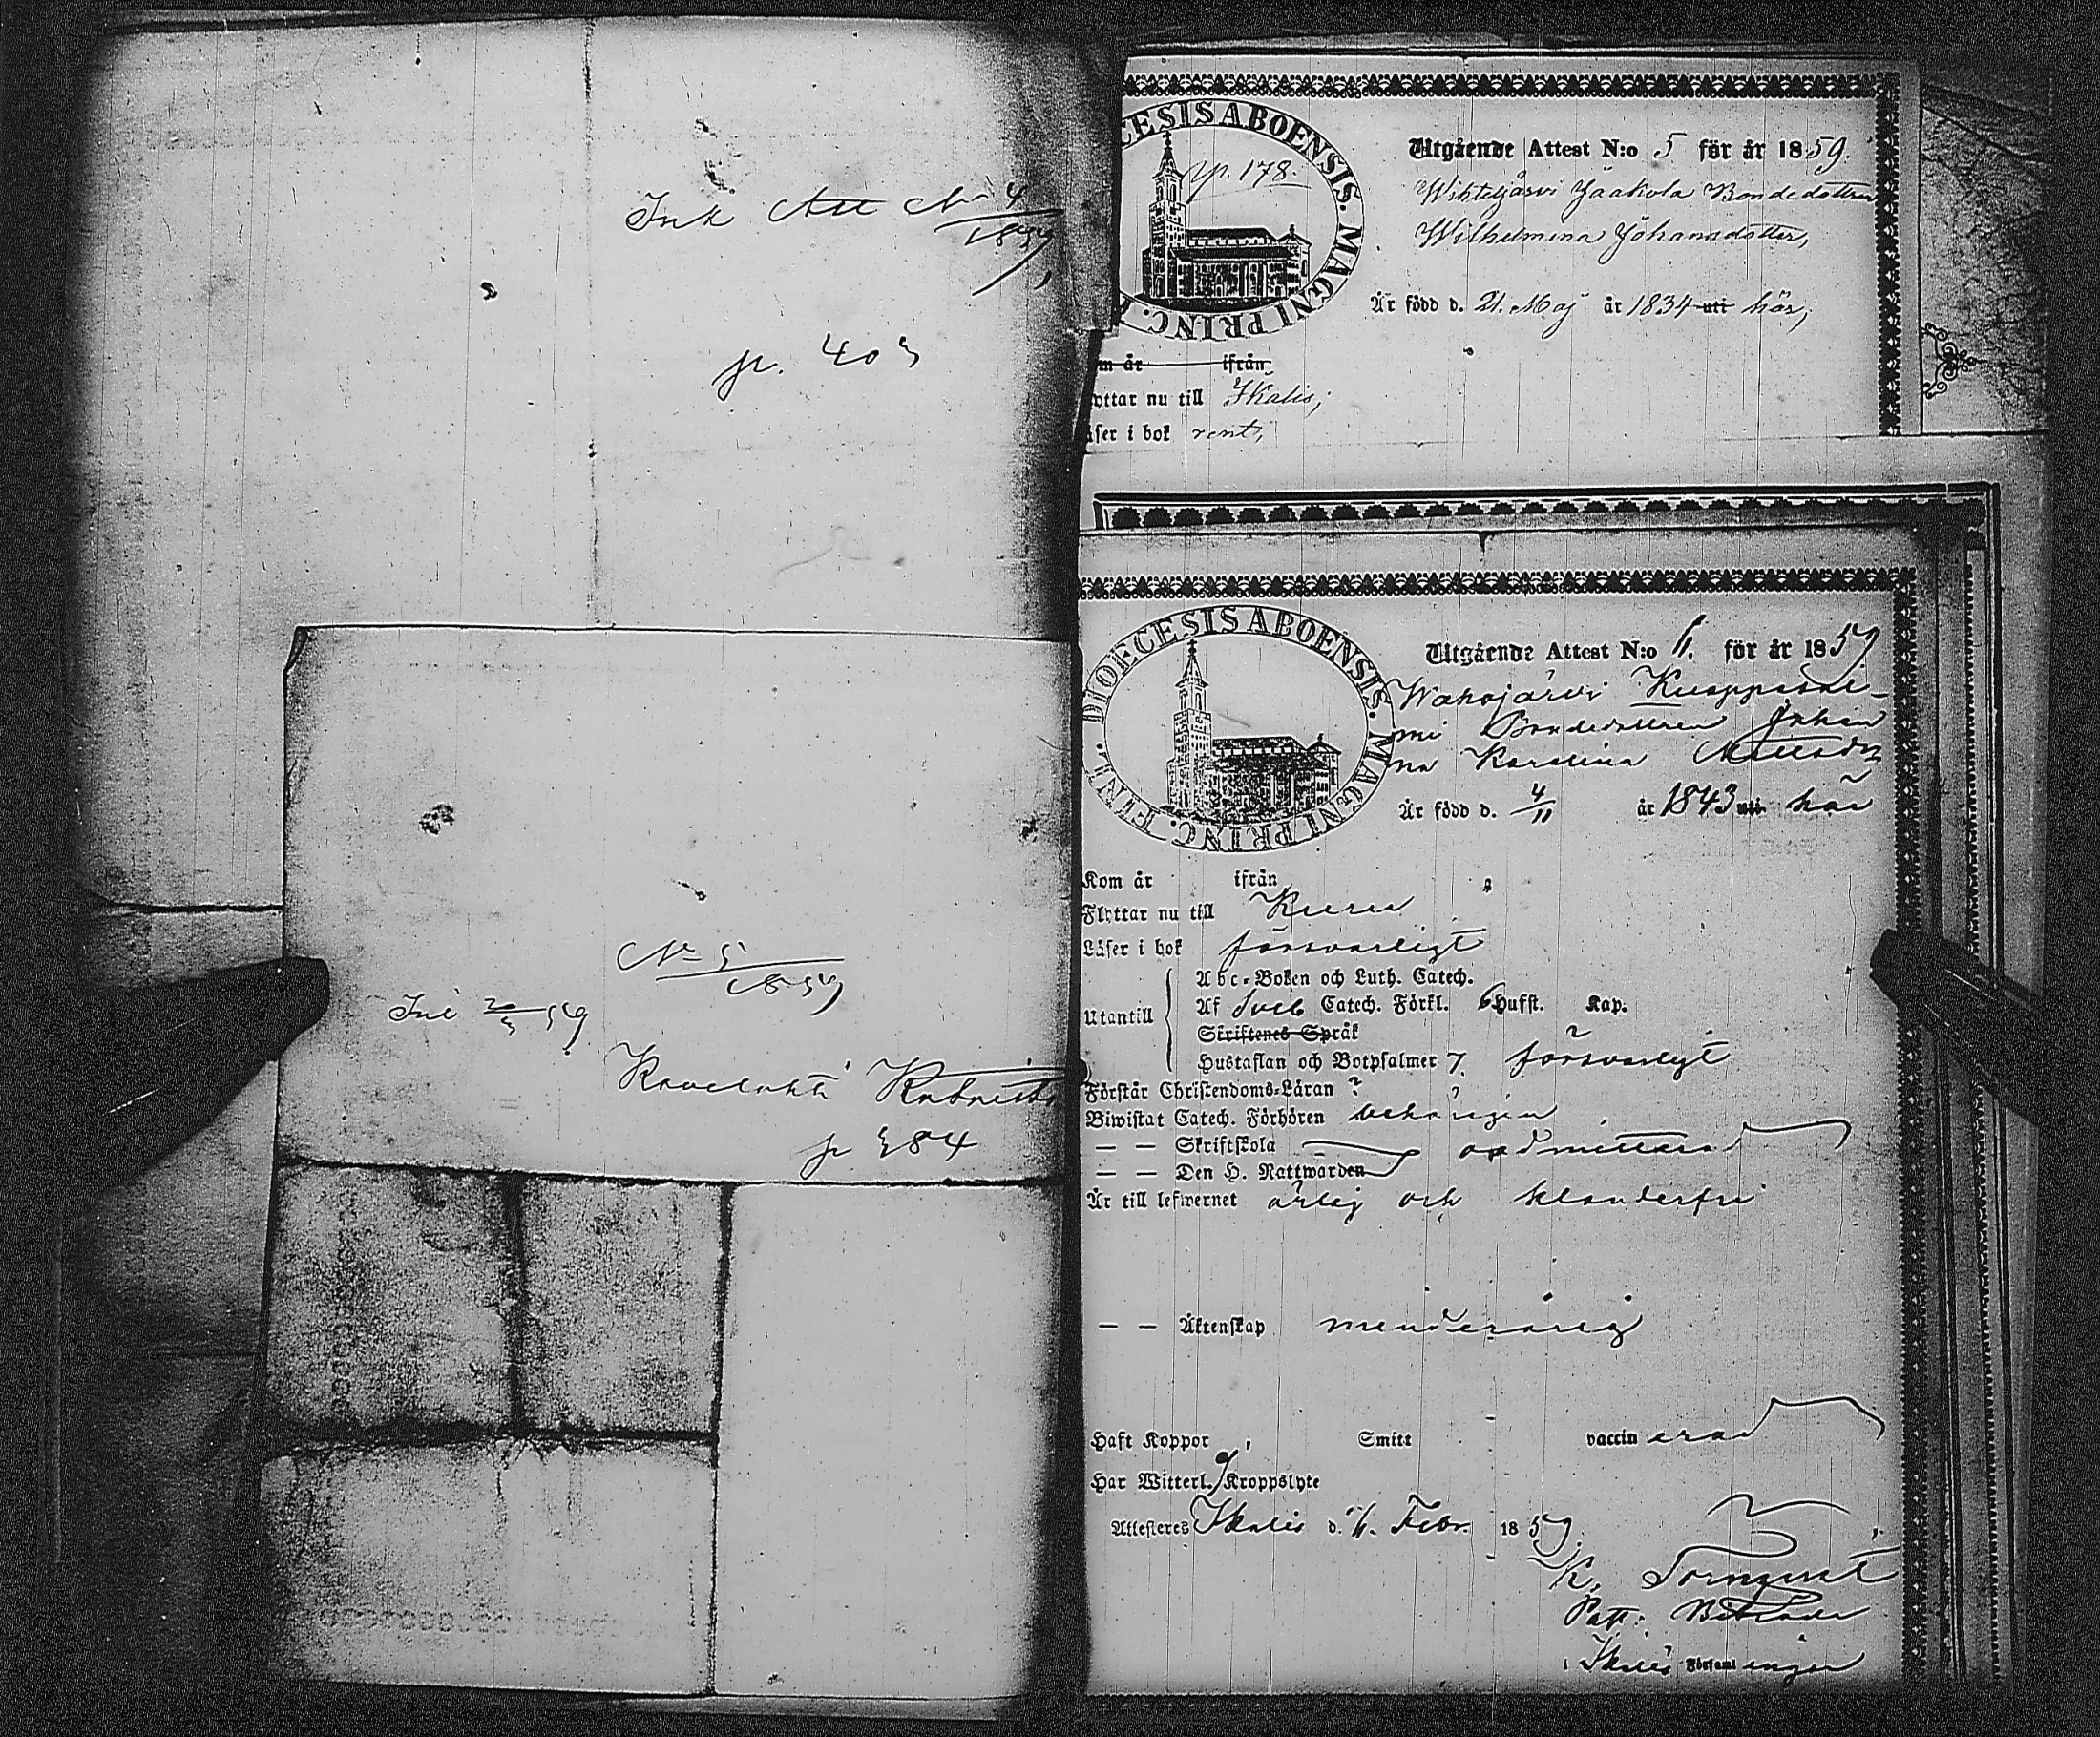 Ink Att No 4
1859
p. 403
No 5
1859
Ink 20/3 59.
p 384
DIOECESIS ABOENSIS. MAGNI PRINC.
p. 178.
Utgående Attest N:o 5 för år 1859.
Wihteljärvi Jaakola Bondedottren
Wilhelmina Johansdotter,
Är född d. 21. Maj år 1834 uti här;
m år ifrån
yttar nu till Ikalis;
äser i bok rent,
DIOECESIS ABOENSIS. MAGNI PRINC. FINL.
Utgående Attest N:o 6. för år 1859
Wahojärvi Kuappasal-
mi Bondedottren Johan
na Karolina Mattsdr
Är född d. 4/11 år 1843 uti här
Kom år ifrån
Flyttar nu till Kuru
Läser i bok försvarligt
Utantill
Abc-Boken och Luth. Catech.
Af Sveb Catech. Förkl. 6 Hufst. Kap.
Skriftenes Språk
Hustaflan och Botpsalmer 7. försvarligt
Förstår Christendoms-Läran
Biwistat Catech. Förhören behörigen
— — Skriftskola oadmitterad
— — Den H. Nattwarden
Är till lefwernet ärlig och klanderfri
— — Äktenskap minderårig
Haft Koppor Smitt vaccinerad
Har Witterl. Kroppslyte
Attesteres Ikalis d. 6. Febr. 1859.
K. Tornqvist
i Ikalis Församlingar